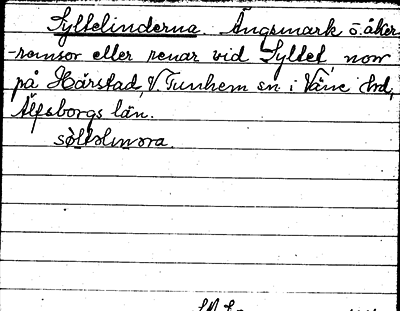 Syltelinderna. Ängsmark o. åker
-remsor eller renar vid Syltet, now
på Hårstad, V. Tunhem sn i Väne hrd,
Älfsborgs län.